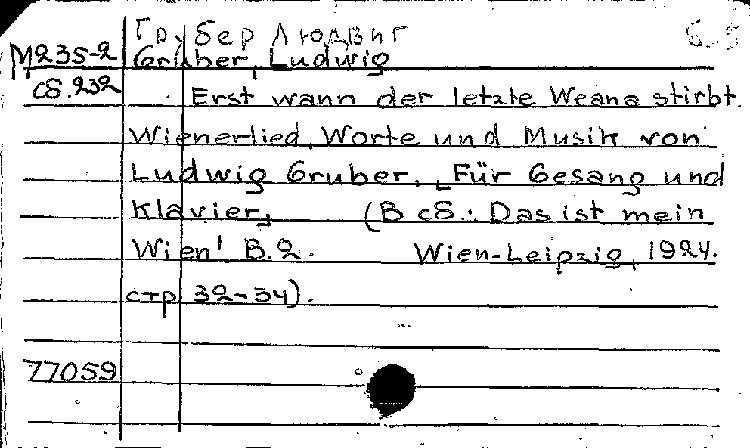 Грубер Людвиг
М235-2 Gruber, Ludwig
сб.232 Erst wann der letzte Weana stirbt.
Wienerlied. Worte und Musik von
Ludwig Gruber. Für Gesang und
Klavier, (В сб.: Das ist mein
Wien! B.2. Wien-Leipzig, 1924.
стр 32-34).
77059